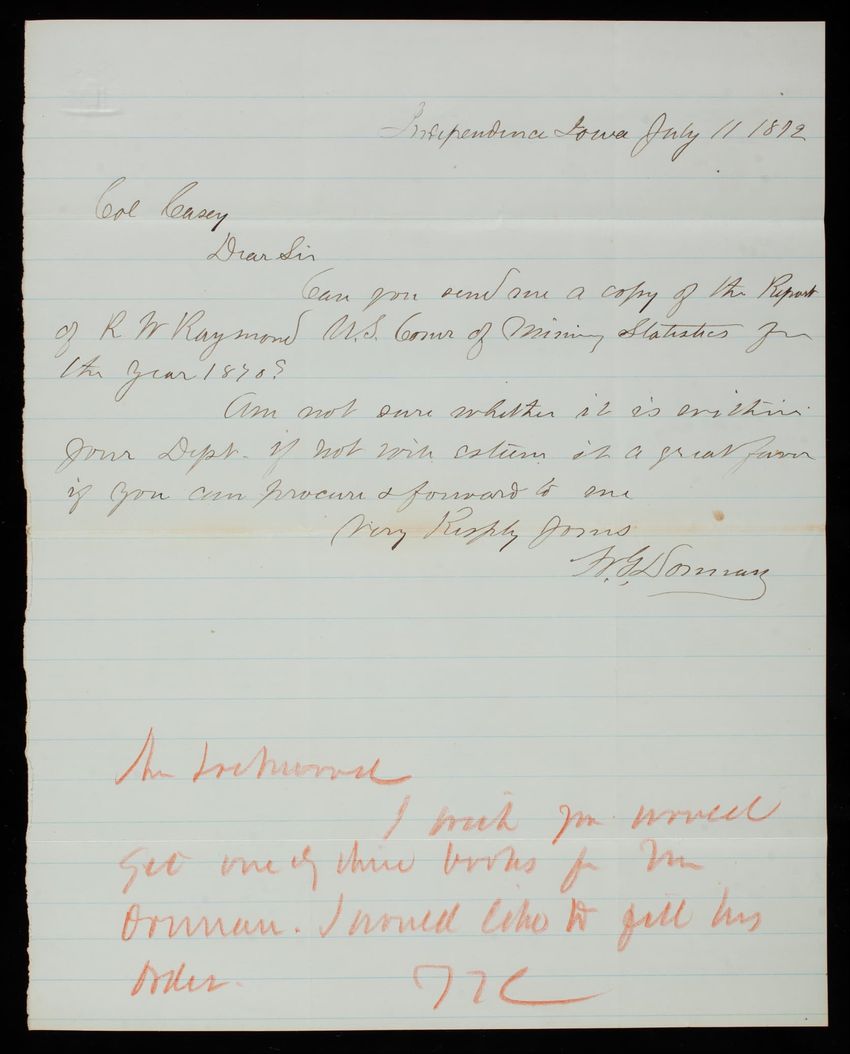 Independence Iowa July 11 1872
Col Casey
Dear Sir
Can you send me a copy of the Report
of R W Raymond U.S. Comr of Mining Statistics for
the year 1870?
Am not sure whether it is within
your Dept. if not will esteem it a great favor
if you can procure & forward to me
Very Respfy Yours
W. G. Donnan
Mr Lockwood
I wish you would
get one of these books for Mr
Donnan. I would like to fill his
order.
TLC